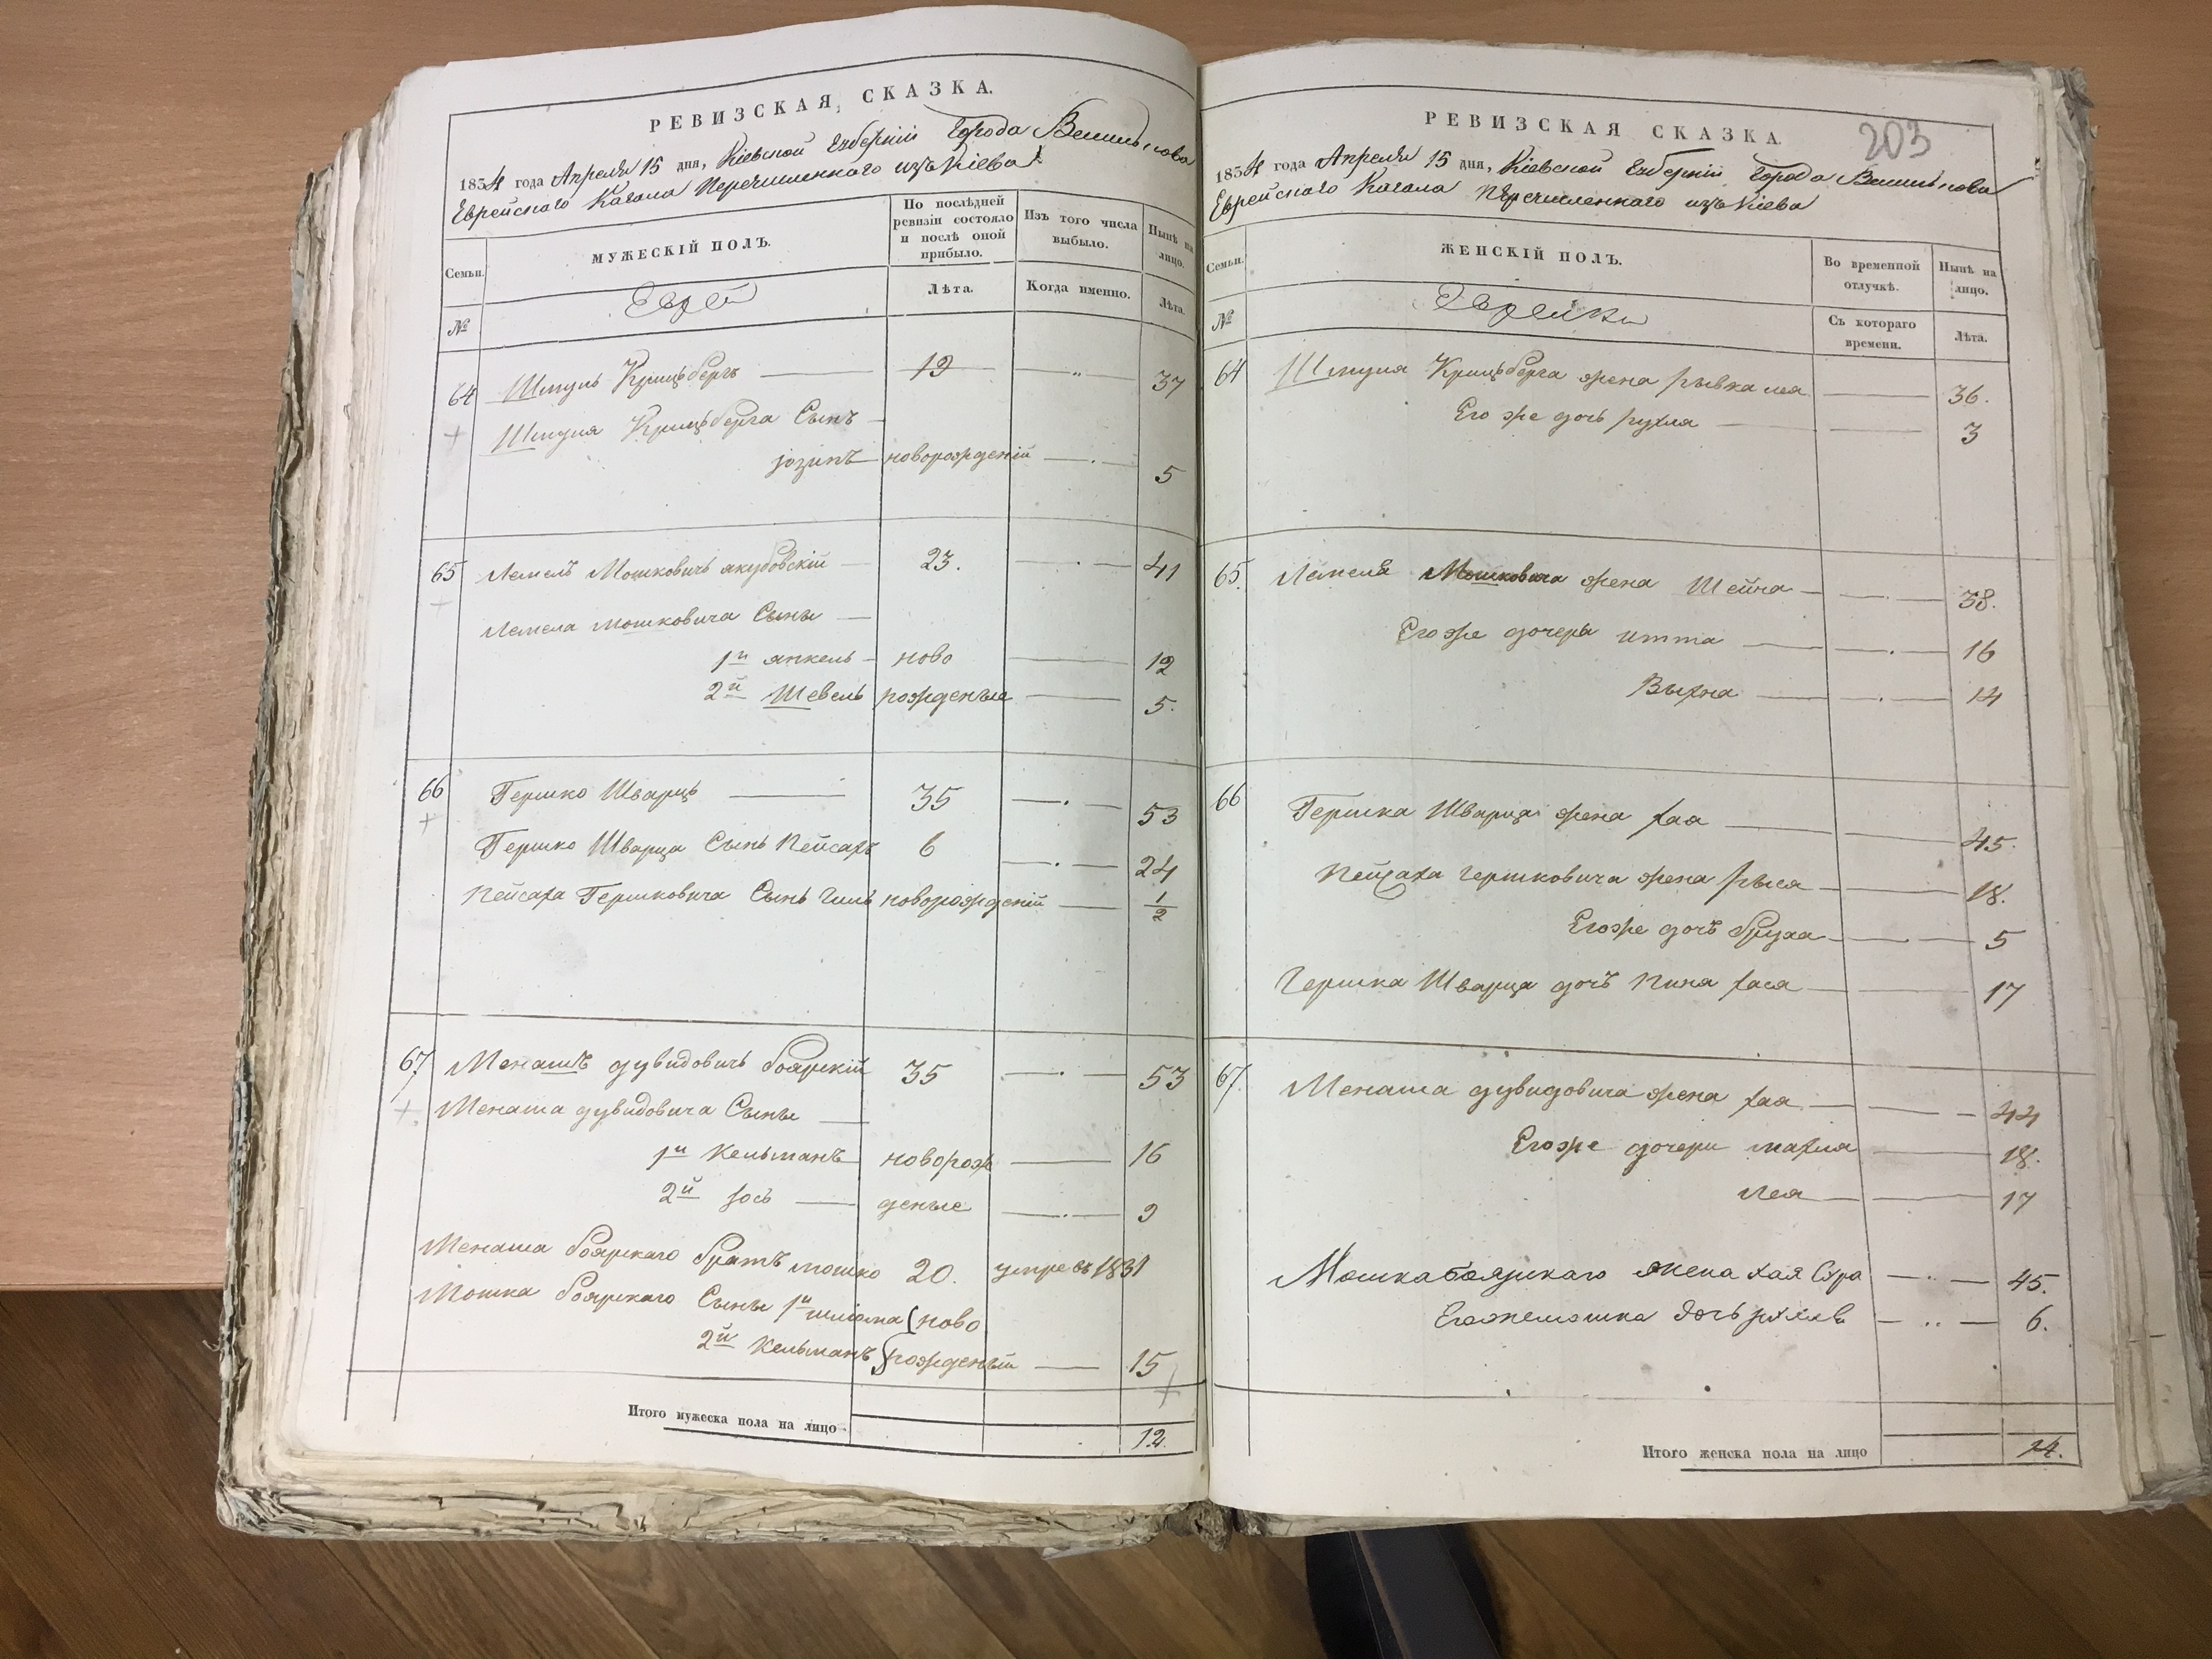 РЕВИЗСКАЯ СКАЗКА.
1834 года Апреля 15 дня, Кіевской Губерніи Города Василькова
Еврейскаго Кагала Перечисленнаго изъ Кіева
Семьи.
МУЖЕСКІЙ ПОЛЪ.
По послѣдней ревизіи состояло и послѣ оной прибыло.
Изъ того числа выбыло.
Нынѣ на лицо.
№
Еврей
Лѣта.
Когда именно.
Лѣта.
64 Шмуль Крицбергъ 19 37
Шмуля Крицберга Сынъ
іозипъ новорожденій 5
65 Лемель Мошковичъ якубовскій 23. 41
Лемела мошковича Сыны
1й янкель ново 12
2й Шевель рожденыя 5.
66 Гершко Шварцъ 35 53
Гершко Шварца Сынъ Пейсахъ 6 24
Пейсаха Гершковича Сынъ новорожденій 1/2
67 Менашъ дувидовичъ боярскій 35 53
Менаша дувидовича Сыны
1й Кельманъ новорож 16
2й іось деные 9
Менаша боярскаго братъ мошко 20. умре въ 1831
Мошка боярскаго Сыны 1й шліома ново
2й Кельманъ рожденый 15
Итого мужеска пола на лицо
12
203
РЕВИЗСКАЯ СКАЗКА.
1834 года Апреля 15 дня, Кіевской Губерніи Города Василькова
Еврейскаго Кагала Перечисленнаго изъ Кіева
Семьи.
ЖЕНСКІЙ ПОЛЪ.
Во временной отлучкѣ.
Нынѣ на лицо.
№
Еврейки
Съ котораго времени.
Лѣта.
64 Шмуля Крицберга жена рывка лея 36.
Его же дочь рухля 3
65. Лемеля Мошковича жена Шейна 38.
Его же дочеры итта 16
Выхна 14
66 Гершка Шварца жена хая 45.
Пейсаха гершковича жена рыся 18.
Его же дочъ бруха 5
Гершка Шварца дочъ хася 17
67. Менаша дувидовича жена хая 44
Его же дочери махля 18.
лея 17
Мошка боярскаго жена хая Сура 45.
Егожемошка дочь 6.
Итого женска пола на лицо
14.